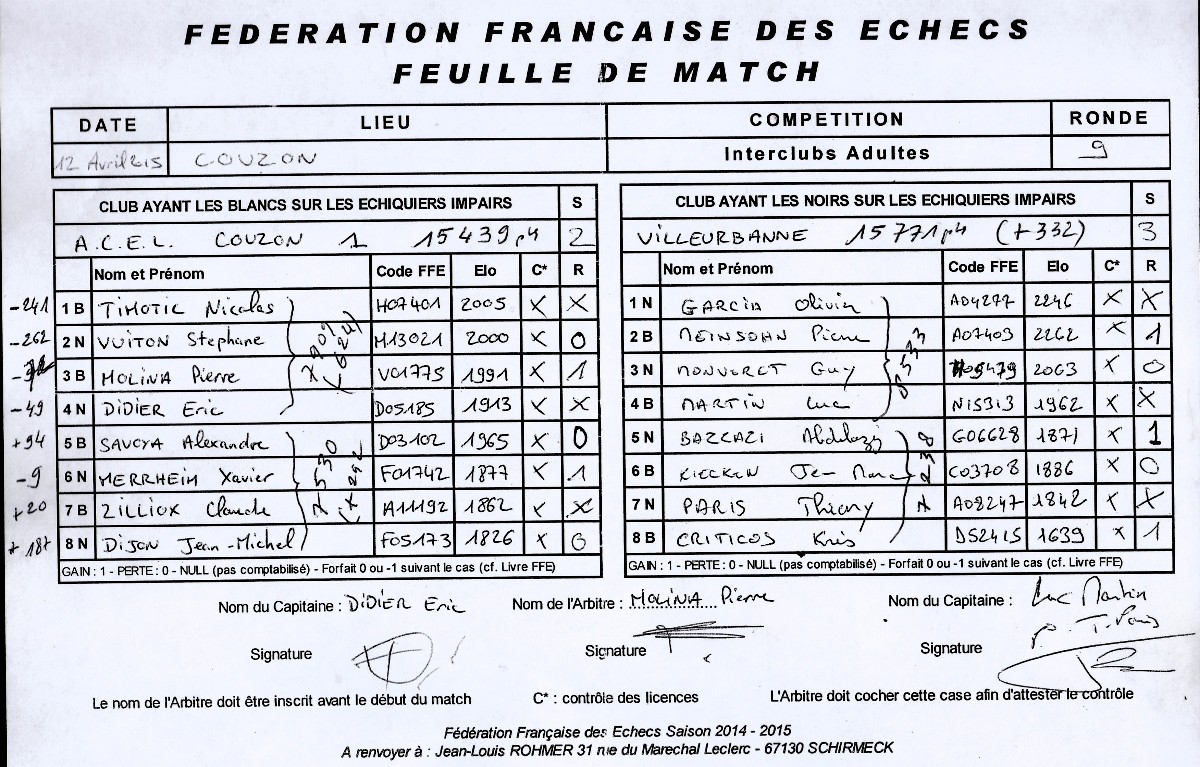 FEDERATION FRANCAISE DES ECHECS
FEUILLE DE MATCH
DATE LIEU COMPETITION RONDE
12 Avril 2015 COUZON Interclubs Adultes 9
CLUB AYANT LES BLANCS SUR LES ECHIQUIERS IMPAIRS S
A.C.E.L. COUZON 1 15439 pts 2
Nom et Prénom Code FFE Elo C* R
-241 1 B TIMOTIC Nicolas H07401 2005 X X
-262 2 N VUITON Stephane M13021 2000 X 0
3 B MOLINA Pierre V01775 1991 X 1
-49 4 N DIDIER Eric D05185 1913 X X
+94 5 B SAVOYA Alexandre D03102 1965 X 0
-9 6 N MERRHEIM Xavier F01742 1877 X 1
+20 7 B ZILLIOX Claude A11192 1862 X X
+187 8 N DIJON Jean-Michel F05173 1826 X 0
7530
GAIN : 1 - PERTE : 0 - NULL (pas comptabilisé) - Forfait 0 ou -1 suivant le cas (cf. Livre FFE)
CLUB AYANT LES NOIRS SUR LES ECHIQUIERS IMPAIRS S
VILLEURBANNE 15771 pts (+332) 3
Nom et Prénom Code FFE Elo C* R
1 N GARCIA Olivier A04277 2246 X X
2 B MEINSOHN Pierre A07403 2262 X 1
3 N MONVERET Guy 2063 X 0
4 B MARTIN Luc N15313 1962 X X
8533
5 N Abdelaziz G06628 1871 X 1
6 B KIECKEN Jean Marc C03708 1886 X 0
7 N PARIS Thierry A08247 1842 X X
8 B CRITICOS Kris D52415 1639 X 1
7238
GAIN : 1 - PERTE : 0 - NULL (pas comptabilisé) - Forfait 0 ou -1 suivant le cas (cf. Livre FFE)
Nom du Capitaine : DIDIER Eric Nom de l'Arbitre : MOLINA Pierre Nom du Capitaine : Luc Martin
p. T. Paris
Signature Signature Signature
Le nom de l'Arbitre doit être inscrit avant le début du match C* : contrôle des licences L'Arbitre doit cocher cette case afin d'attester le contrôle
Fédération Française des Echecs Saison 2014 - 2015
A renvoyer à : Jean-Louis ROHMER 31 rue du Marechal Leclerc - 67130 SCHIRMECK